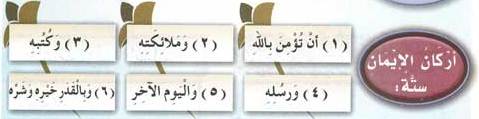 أَرْكَانُ الْإِيْمَانِ
سِتَّةٌ:
(١) أَنْ تُؤْمِنَ بِاللهِ
(٢) وَمَلَائِكَتِهِ
(٣) وَكُتُبِهِ
(٤) وَرُسُلِهِ
(٥) وَالْيَوْمِ الْآخِرِ
(٦) وَبِالْقَدَرِ خَيْرِهِ وَشَرِّهِ